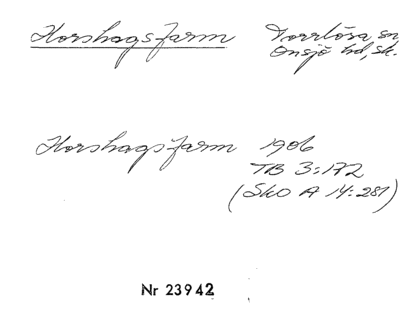 Horshagsfarm Torrlösa sn,
Onsjö hd, sk.
Horshagsfarm 1906
TB 3:172
(SkO A 14:281)
Nr 23942